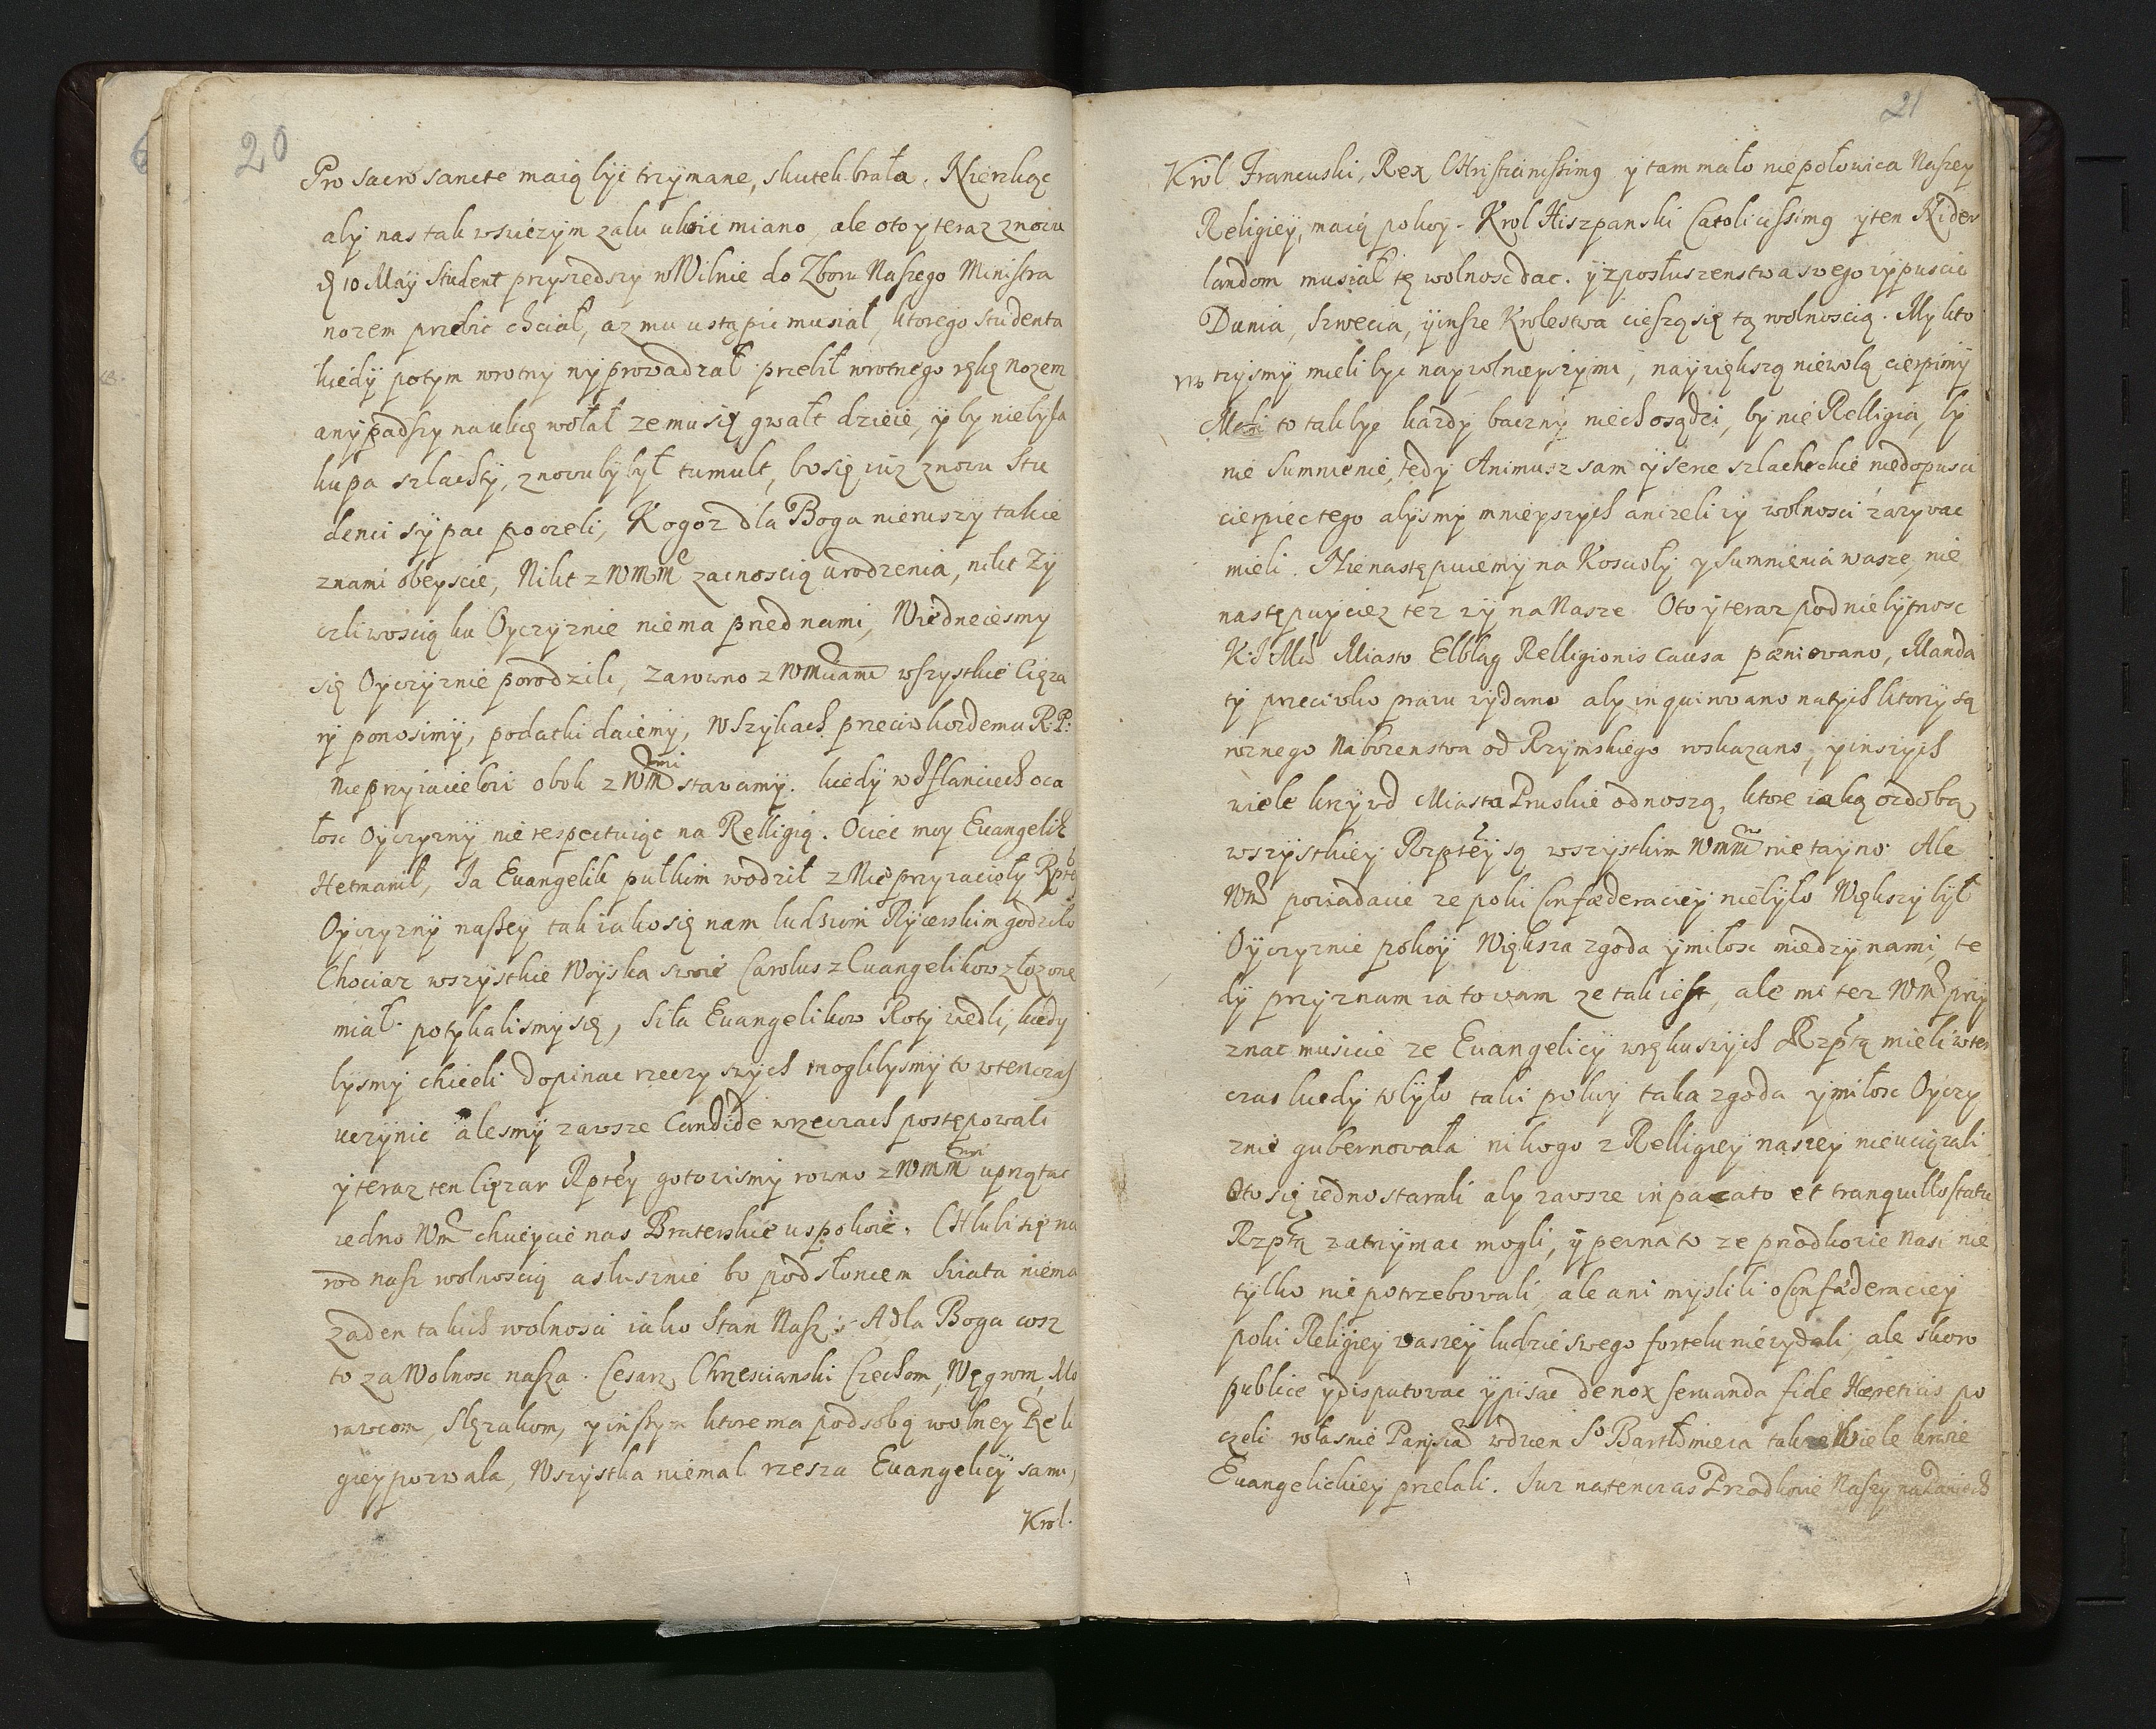 20
Pro sacro sancte maią być trzymane, skutek brała. Nierzkąc
aby nas tak w swiezym zalu ukoić miano, ale oto y teraz znowu
10 Maÿ Student przyszedszy w Wilnie do Zboru Naszego Ministra
nozem przebic chciał, az mu ustąpic musiał, ktorego studenta
kiedÿ potym wrotny wyprowadzał przebił wrotnego rękę nozem
a wypadszy na ulicę wołał ze mu się gwałt dzieie, ÿ by nie była
kupa szlachty, znowu by był tumult, bo się iuz znowu Stu
denci sÿpac poczeli, Kogoz dla Boga nieruszy takie
z nami obeyscie, Nikt z WMM zacnoscią urodzenia, nikt zy
czliwoscią ku Oyczyznie niema przed nami, W iedneiesmy
się Oyczyznie porodzili, zarowno z WMciami wszystkie Cięza
ry ponosimy, podatki daiemy, W Szykach przeciw kozdemu R.P.
Nieprzyiacielowi obok z WMmi stawamy. kiedÿ w Iflanciech oca
łosc Oyczyzny nie respectuiąc na Relligią. Ociec moy Euangelik
Hetmanił, Ia Euangelik pułkiem wodził z Nieprzyiacioły Rptey
Oyczyzny naszey tak iako się nam ludziom Rycerskim godziło
Chociaz wszystkie Woyska swoie Carolus z Euangelikow złozone
miał. potykalismy się, Siła Euangelikow Roty wiedli, kiedy
bysmy chcieli dopinac rzeczy swych moglibysmy to wtenczas
uczynic alesmÿ zawsze Candide w rzeczach postępowali
y teraz ten Cięzar Rptey gotowismy rowno z WMMmi uprzątac
iedno WM chcieycie nas Bratersko uspokoić. CHlubi się na
rod nasz wolnoscią a słusznie bo pod słoncem swiata niema
zaden takich wolnosci iako Stan Nasz. A dla Boga cosz
to za Wolnosc nasza. Cesarz Chrzescianski Czechom, Węgrom, Mo
rawcom, Slęzakom, y inszym ktore ma pod sobą wolney Reli
giey pozwala, Wszystka niemal rzesza Euangelicÿ sami,
Krol.
21
Krol Francuski, Rex CHristianissimus y tam mało nie połowica Naszey
Religiey, maią pokoy. Krol Hiszpanski Catolicissimus y ten Nider
landom musiał tę wolnosc dac. y z posłuszenstwa swego wypuscic
Dania, Szwecia, y insze Krolestwa cieszą się tą wolnoscią. My kto
rzysmy mieli byc naywolnieyszymi, naywiększą niewolą cierpimy
to tak byc kazdy baczny niech osądzi, by nie Relligia, by
nie Sumnienie, tedy Animusz sam y serce szlacheckie niedopusci
cierpiec tego abysmy mnieyszych anizeli wy wolnosci zazywac
mieli. Nie nastepuiemy na Koscioły y Sumnienia wasze, nie
następuyciez tez wy na Nasze. Oto y teraz pod niebytnosc
K.I.Mci Miasto Elbląg Relligionis causa pæniowano, Manda
ty przeciwko prawu wydano aby inquirowano na tych ktorzy są
roznego Nabozenstwa od Rzymskiego wskazano, y inszych
wiele krzywd Miasta Pruskie odnoszą, ktore iaką ozdobą
wszystkiey Rzptey są wszystkim WMM nie tayno. Ale
WM powiadacie ze poki Confæderaciey niebyło Większy był
Oyczyznie pokoy Większa zgoda y miłosc miedzy nami, te
dy przyznam ia to wam ze tak iest, ale mi tez WM przy
znac musicie ze Euangelicy w ręku swych Rzptą mieli w ten
czas kiedy to było taki pokoy taka zgoda y miłosc Oyczy
znie gubernowała nikogo z Relligiey naszey nieuciązali
Oto się iedno starali aby zawsze in pacato et tranquillo statu
Rzptą zatrzymac mogli, y pewna to ze przodkowie nasi nie
tylko niepotrzebowali, ale ani myslili o Confæderaciey
poki Religiey waszey ludzie swego fortelu niewydali, ale skoro
publice y disputowac y pisac de non servanda fide Hæreticis po
częli własnie Paryscÿ w dzien S° Bartłomieia takze Wiele krwie
Euangelickiey przelali. Iuz natenczas Przodkowie Naszy na Zaniech